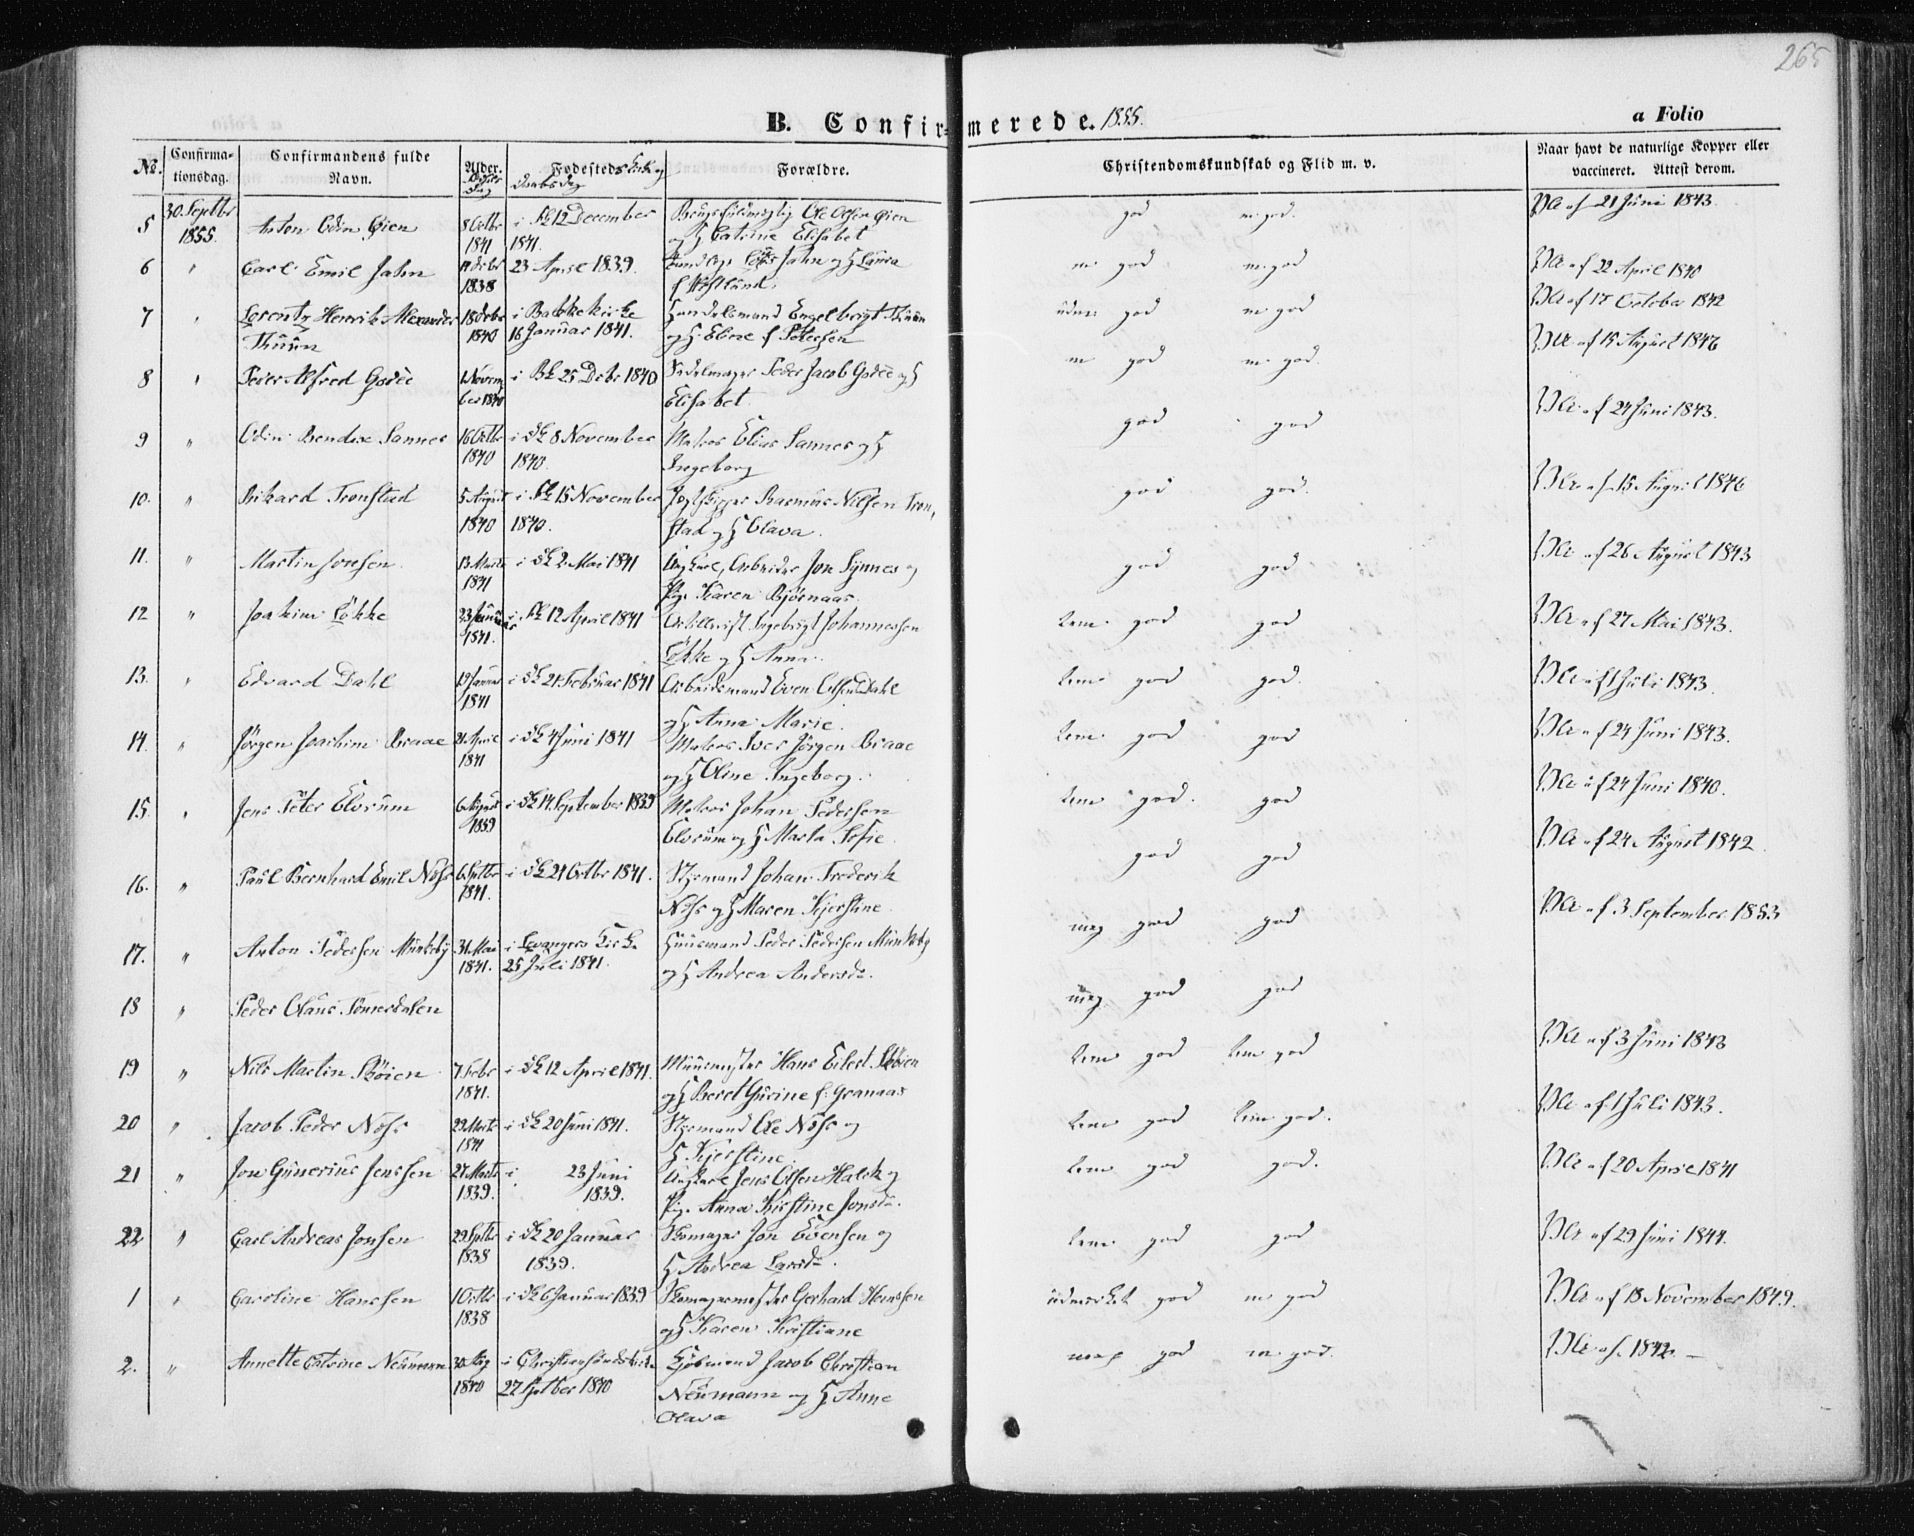 265
B. Confirmerede. 1855.
a Folio
No.
Confirma-
tionsdag.
Confirmandens fulde
Navn.
Alder.
Fødested
og
Daabsdag
Forældre.
Christendomskundskab og Flid m. v.
Naar havt de naturlige Kopper eller
vaccineret. Attest derom.
5 30 Septbr 1855. Anton Odin Øien 8 Octbr 1841 i 12 December 1841. Ole Olsen Øien
og H Catrine Elisabet god m. god. Va af 21 Juni 1843.
6 " Carl Emil Jahn 1838 23 April 1839. Jahn og H Laura
f m. god m. god Va af 22 April 1840
7 " Lorentz Henrik Alexander
Thuun 18 Debr 1840 i Bakkekirke
16 Januar 1841. Handelsmand Engelbrigt Thuun
og H f Petersen god m. god Va af 17 October 1842
8 " Peder Alfred Godee 1 November 1840 i Bk 25 Debr 1840 Sadelmager Peder Jacob Godee og H
Elisabet m god m. god. Va af 15 August 1846
9 " Odin Bendix Sannes 16 Octbr 1840 i Dk 8 November
1840. Elias Sannes og H
Ingeborg god god Va af 24 Juni 1843.
10. " Rikard Tronstad 5 August 1840 i 15 November
1840. Rasmus Nilsen Tron-
stad og H Olava. god god. Va af 15 August 1846
11. " Martin Jonsen 13 Marts 1841 i Dk 2 Mai 1841 Ungkarl, Arbeider Jon Synnes og
Pig. Karen Bjørnaas. god god Va af 26 August 1843
12 " Joakim Løkke 23 Januar 1841. i 12 April 1841 Ingebrigt Johannessen
Løkke og H Anna. tem. god god Va af 27 Mai 1843.
13. " Edvard Dahl 19 Januar 1841 i Dk 21 Februar 1841 Arbeidsmand Even Olsen Dahl
og H Anna Marie. tem god god. Va af 1 Juli 1843.
14. " Jørgen Joachim Braae 21 April 1841 i Dk 4 Juni 1841 Iver Jørgen Braae
og H Oline Ingeborg. tem. god god Va af 24 Juni 1843.
15. " Jens Peter Elvrum 6 August 1839 i Dk 14 September 1839 Johan Pedersen
Elvrum og H Marta Sofie tem god. god Va af 24 Juni 1840.
16. " Paul Bernhard Emil Nøhr 6 Septbr 1841. i Dk 21 Octbr 1841. Styrmand Johan Frederik
Nøhr og H Maren Kjerstine god god Va af 24 August 1842.
17. " Anton Pedersen Munkeby 31 Mai 1841. i Levangers Kirke
25 Juli 1841. Huusmand Peder Pedersen Munkeby
og H Andrea Andersd. meg god god Va af 3 September 1853
18 " Peder Olaus Sømerdalen meg god god
19 " Nils Martin Bøien 7 Febr 1841. i Dk 12 April 1841. Muurmester Hans Eilert Bøien
og H Beret Gurine f. Granaas tem god tem god Va af 3 Juni 1843
20 " Jacob Peder Nøhr 29 Marts 1841 i Dk 20 Juni 1841. Styrmand Ole Nøhr og
H Kjerstine. tem god tem god. Va af 1 Juli 1843.
21 " Jon Gunerius Jenssen 27 Marts 1839. i 23 Juni
1839. Ungkarl Jens Olsen og
Pig. Anna Kirstine Jonsd. tem god god. Va af 20 April 1841
22 " Carl Andreas Jonsen 29 Septbr 1838 i Dk 20 Januar
1839. Skomager Jon Evensen og
H Andrea Larsd. tem god god Va af 29 Juni 1844.
1 " Caroline Hanssen 1 Octbr 1838 i Dk 6 Januar 1839 Skomagermester Gerhard Hanssen
og H Karen Kristiane udmerket god m. god Va af 18 November 1849.
2. " Annette Catrine Neumann 30 Aug 1840 i Christiansunds Kirke
27 Septber 1840 Kjøbmand Jacob Christian
Neumann og H Anne
Olava meg god m. god. Va af 1842. —